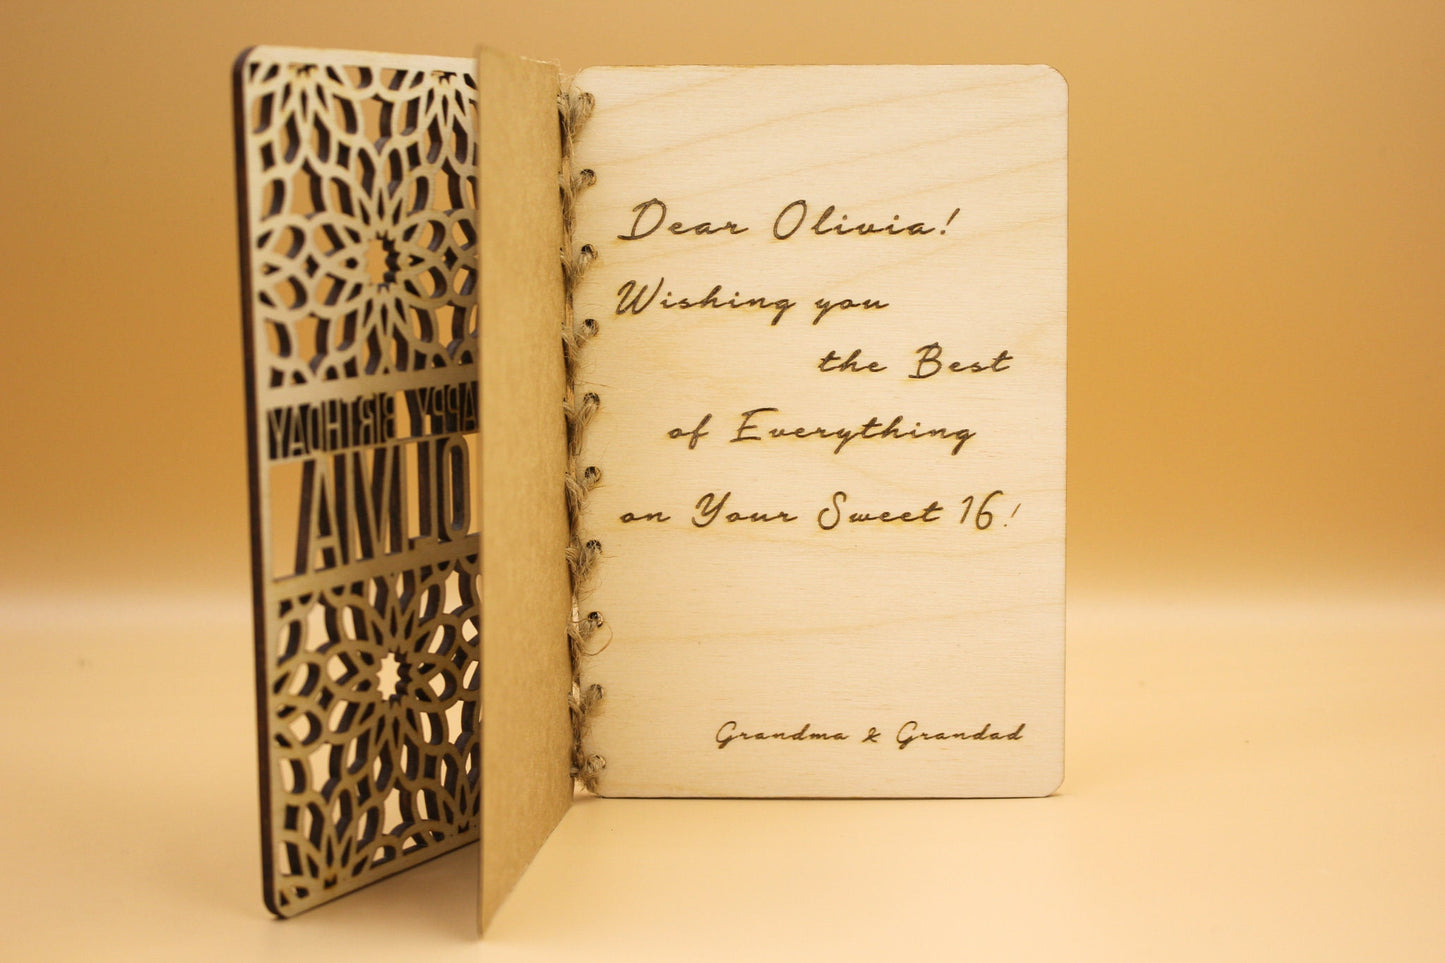 HAPPY BIRTHDAY
OLIVIA
Dear Olivia!
Wishing you
the Best
of Everything
on Your Sweet 16!
Grandma & Grandad